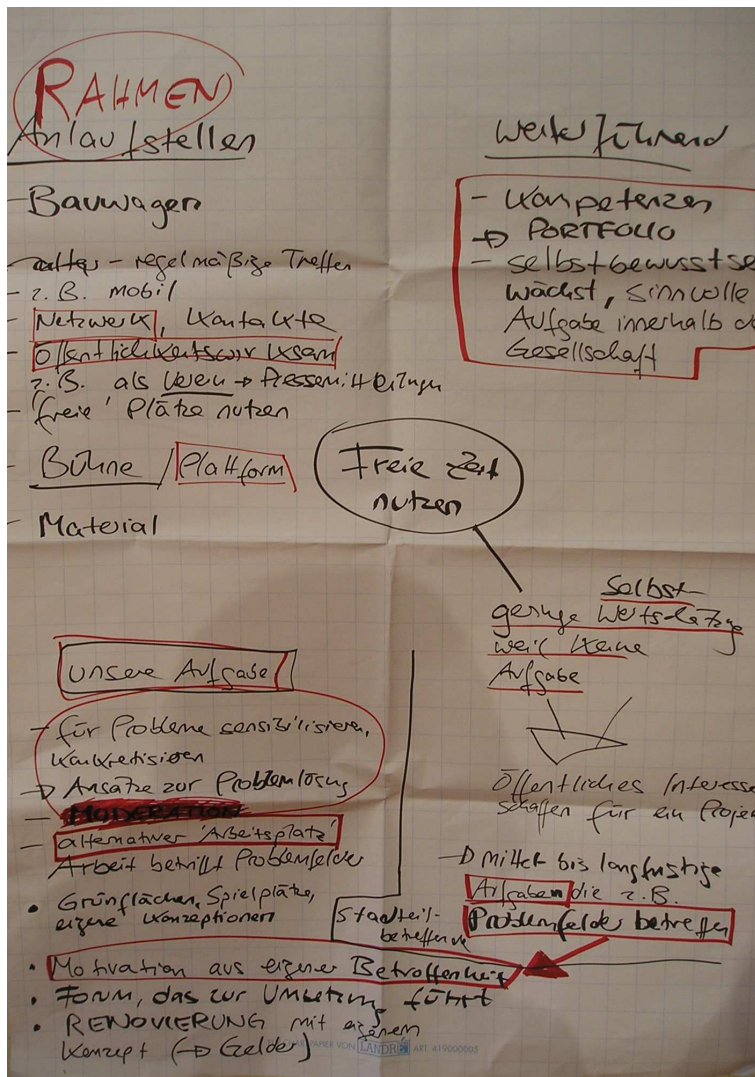 RAHMEN
Anlaufstellen
- Bauwagen
- regelmäßige Treffen
- z.B. mobil
- Netzwerk, Kontakte
- Öffentlichkeitswirksam
z.B. als Verein → Pressemitteilungen
- 'freie' Plätze nutzen
- Bühne / Plattform
- Material
weiterführend
- Kompetenzen
→ PORTFOLIO
- Selbstbewusstse
wächst, sinnvolle
Aufgabe innerhalb d
Gesellschaft
Freie Zeit
nutzen
Selbst-
geringe Wertschätzung
weil keine
Aufgabe
Öffentliches Interesse
schaffen für ein Projek
→ mittel bis langfristige
Aufgaben die z.B.
Problemfelder betreffen
unsere Aufgabe
- für Probleme sensibilisieren,
konkretisieren
→ Ansätze zur Problemlösung
- MODERATION
- alternativer 'Arbeitsplatz'
Arbeit betrifft Problemfelder
• Grünflächen, Spielplätze,
eigene Konzeptionen
Stadtteil-
betreffend
• Motivation aus eigener Betroffenheit
• Forum, das zur Umsetzung führt
• RENOVIERUNG mit eigenem
Konzept (→ Gelder)
PAPIER VON LANDRÉ ART. 419000005